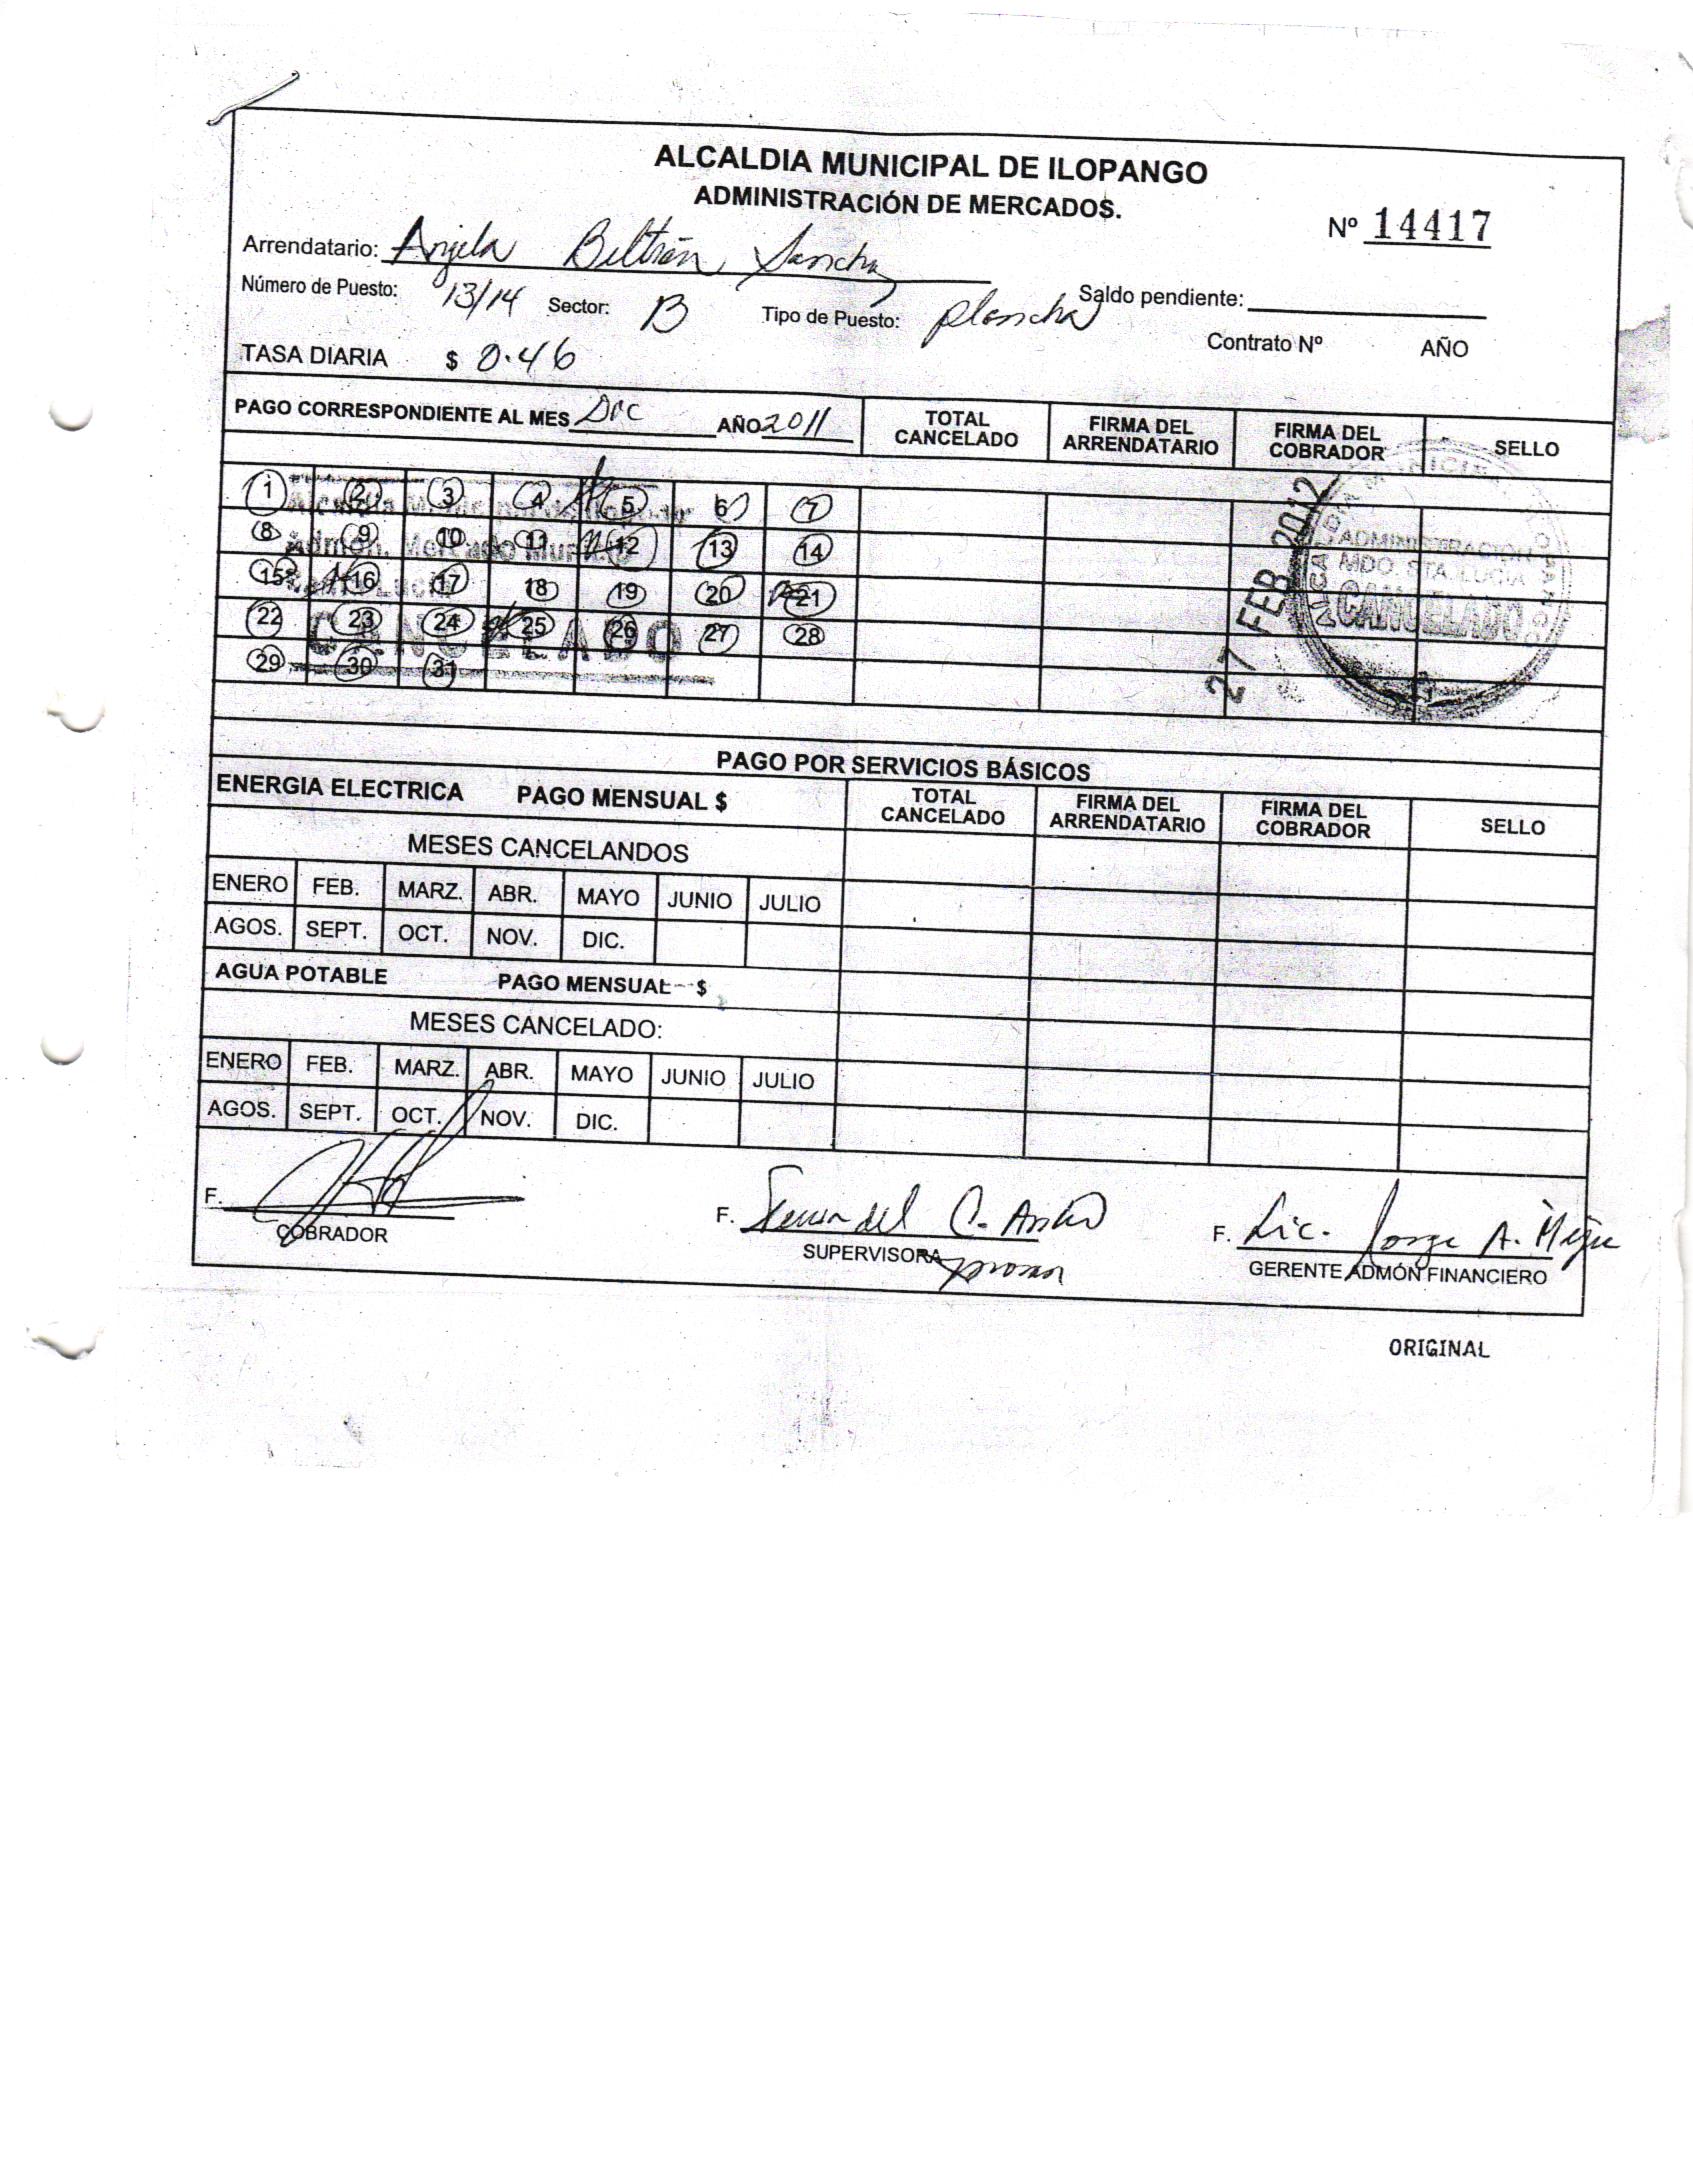 ALCALDIA MUNICIPAL DE ILOPANGO
ADMINISTRACIÓN DE MERCADOS.
Nº 14417
Arrendatario: Angela Beltrán Sanchez
Número de Puesto: 13/14 Sector: B Tipo de Puesto: plancha Saldo pendiente:
Contrato Nº AÑO
TASA DIARIA $ 0.46
PAGO CORRESPONDIENTE AL MES Dic AÑO 2011 TOTAL CANCELADO FIRMA DEL ARRENDATARIO FIRMA DEL COBRADOR SELLO
1 2 3 4 5 6 7
8 9 10 11 12 13 14
15 16 17 18 19 20 21
22 23 24 25 26 27 28
29 30 31
Alcaldia
Admón. Mercado
CANCELADO
27 FEB 2012
ADMINISTRACION
MDO. STA. LUCIA
CANCELADO
PAGO POR SERVICIOS BÁSICOS
ENERGIA ELECTRICA PAGO MENSUAL $ TOTAL CANCELADO FIRMA DEL ARRENDATARIO FIRMA DEL COBRADOR SELLO
MESES CANCELANDOS
ENERO FEB. MARZ. ABR. MAYO JUNIO JULIO
AGOS. SEPT. OCT. NOV. DIC.
AGUA POTABLE PAGO MENSUAL $
MESES CANCELADO:
ENERO FEB. MARZ. ABR. MAYO JUNIO JULIO
AGOS. SEPT. OCT. NOV. DIC.
F. F. del C. F. Lic. Jorge A.
COBRADOR SUPERVISORA GERENTE ADMÓN FINANCIERO
ORIGINAL